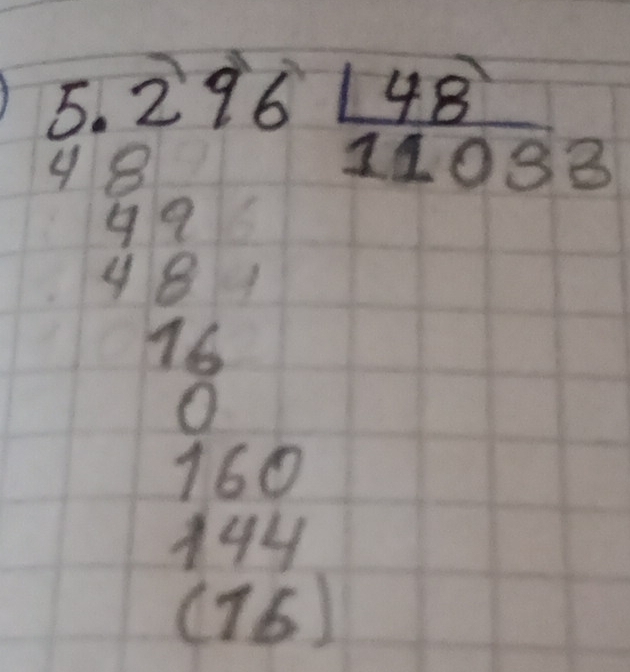 5.296 48
48 11033
49
48
16
0
160
144
(16)